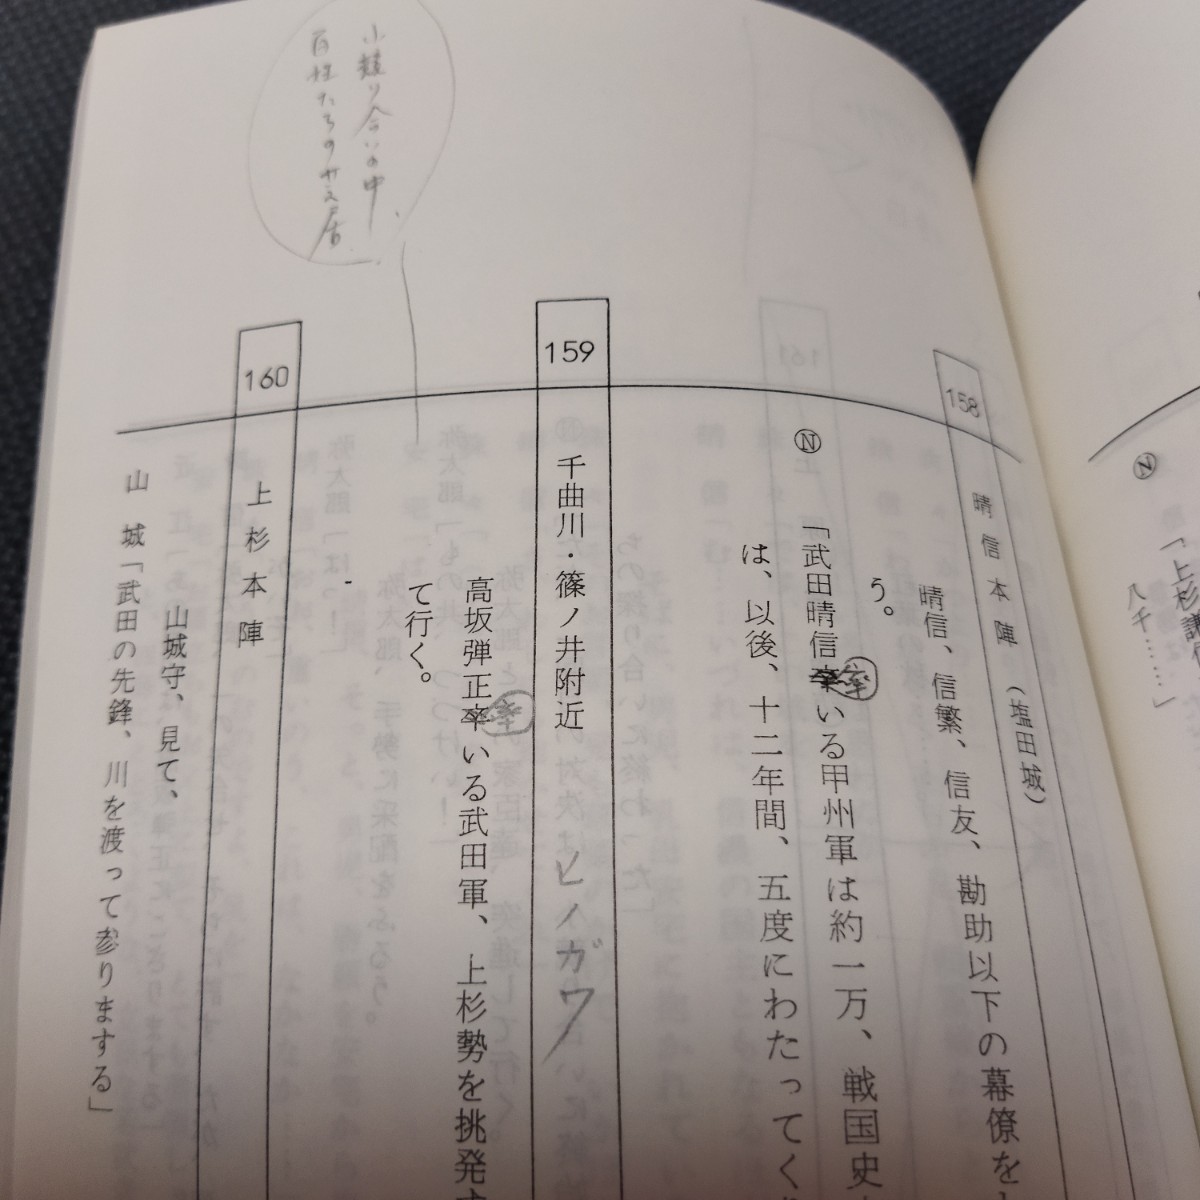 Ⓝ
「上杉謙信
八千……」
158
晴信本陣 (塩田城)
晴信、信繁、信友、勘助以下の幕僚を
う。
Ⓝ 「武田晴信率いる甲州軍は約一万、戦国史
率
は、以後、十二年間、五度にわたってく
159
千曲川・篠ノ井附近
ヒノガワ
高坂弾正率いる武田軍、上杉勢を挑発
率
て行く。
小競り合いの中、
百姓たちの芝居
160
上杉本陣
山城守、見て、
山 城「武田の先鋒、川を渡って参りまする」